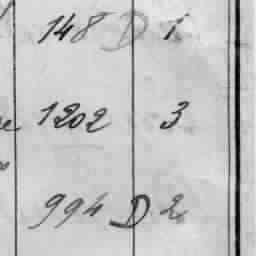 148 D 1
1202 3
994 D 2